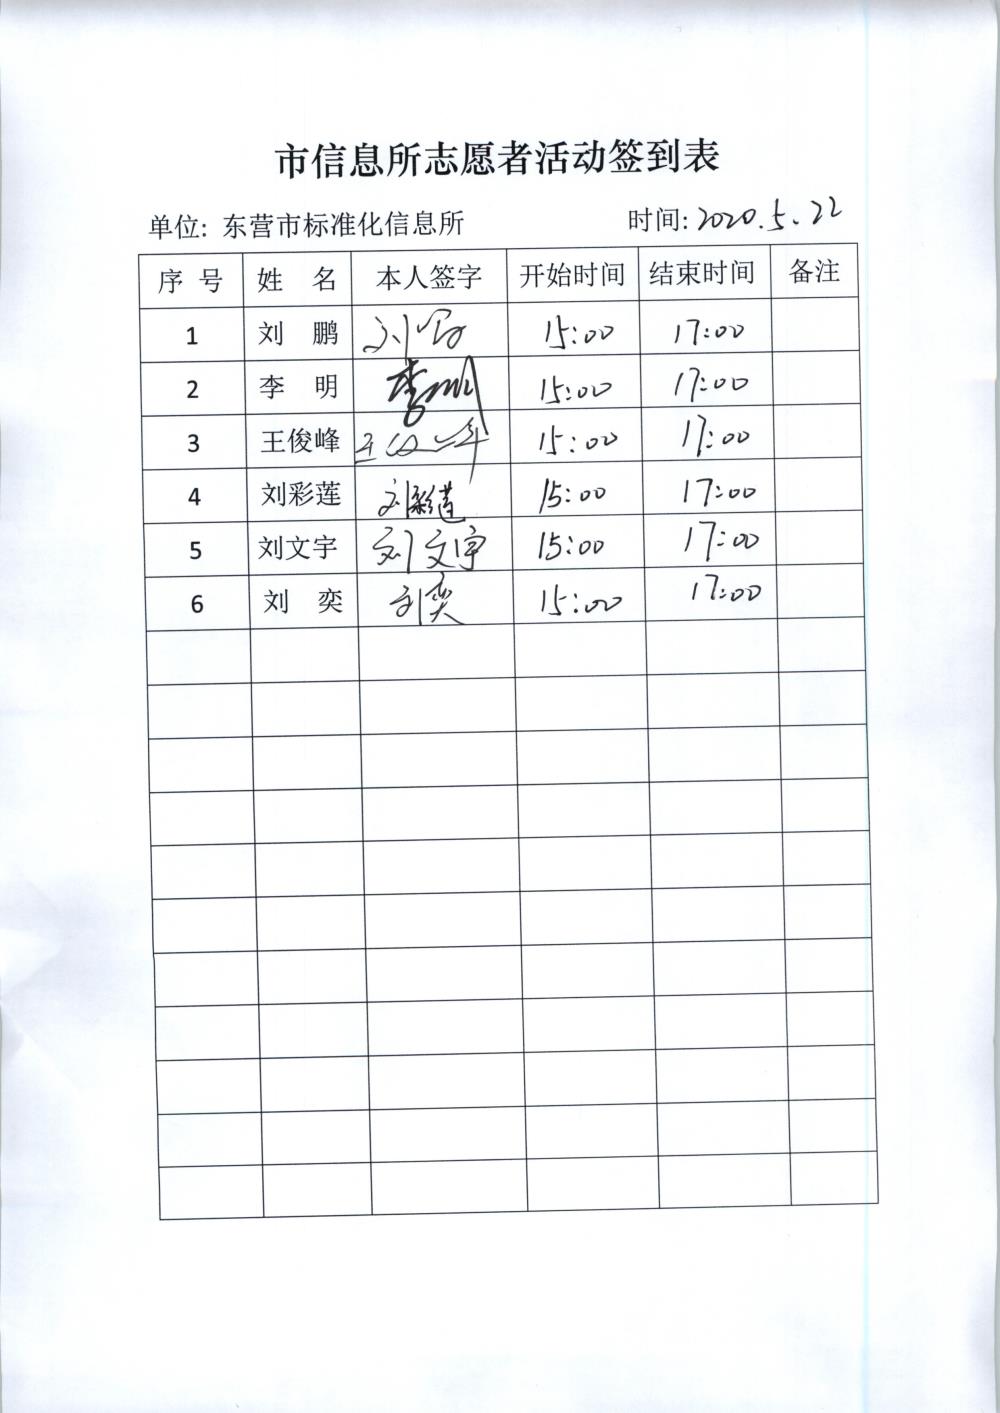 市信息所志愿者活动签到表
单位: 东营市标准化信息所 时间: 2020.5.22
序 号 姓 名 本人签字 开始时间 结束时间 备注
1 刘 鹏 刘鹏 15:00 17:00
2 李 明 李明 15:00 17:00
3 王俊峰 王俊峰 15:00 17:00
4 刘彩莲 刘彩莲 15:00 17:00
5 刘文宇 刘文宇 15:00 17:00
6 刘 奕 刘奕 15:00 17:00